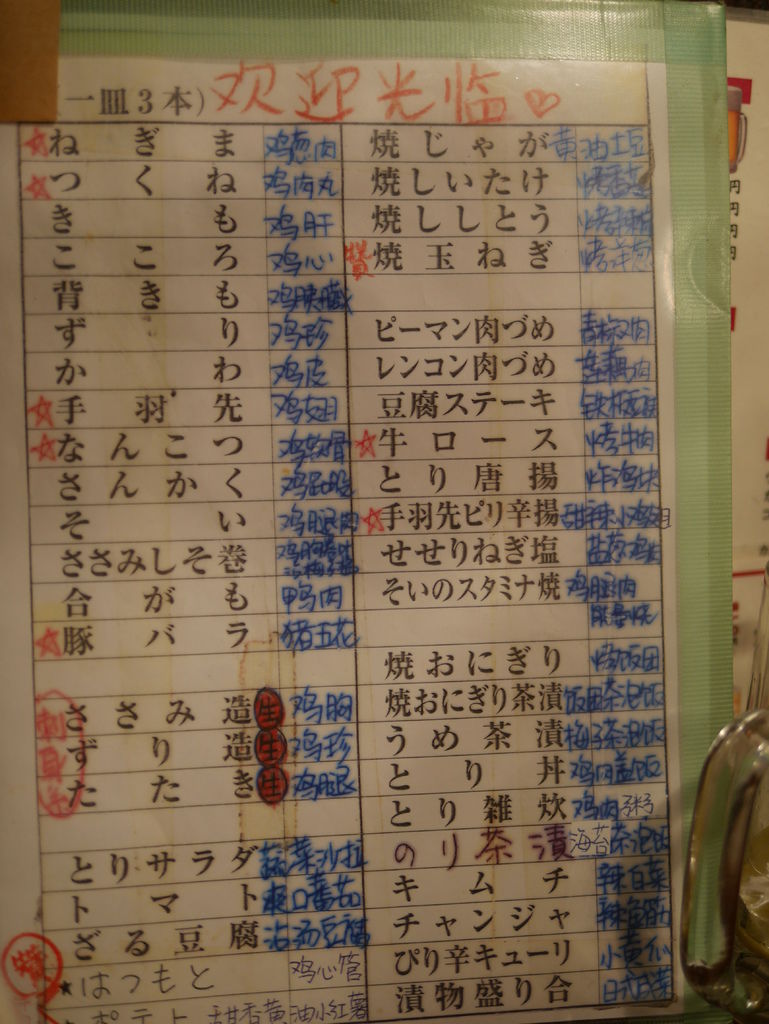 一皿3本) 欢迎光临♡
☆ねぎま 鸡葱肉
☆つくね 鸡肉丸
きも 鸡肝
こころ 鸡心
背きも 鸡胰臓
ずり 鸡珍
かわ 鸡皮
☆手羽先 鸡翅
☆なんこつ 鸡软骨
さんかく 鸡屁股
そい 鸡腿肉
ささみしそ巻
合がも 鸭肉
☆豚バラ 猪五花
刺身
ささみ造 生 鸡胸
ずり造 生 鸡珍
たたき 生 鸡腿
とりサラダ 蔬菜沙拉
トマト 爽口番茄
ざる豆腐 沾汤豆腐
★はつもと 鸡心管
ポテト 甜香黄油小红薯
焼じゃが 黄油土豆
焼しいたけ 烤香菇
焼ししとう
焼玉ねぎ 烤洋葱
ピーマン肉づめ 青椒肉
レンコン肉づめ 莲藕肉
豆腐ステーキ 铁板豆腐
☆牛ロース 烤牛肉
とり唐揚 炸鸡块
☆手羽先ピリ辛揚 甜辣小鸡翅
せせりねぎ塩
そいのスタミナ焼 鸡腿肉
能量烧
焼おにぎり 烤饭团
焼おにぎり茶漬 饭团茶泡饭
うめ茶漬 梅子茶泡饭
とり丼 鸡肉盖饭
とり雑炊 鸡肉粥
のり茶漬 海苔茶泡饭
キムチ 辣白菜
チャンジャ
ぴり辛キューリ 小黄瓜
漬物盛り合 日式咸菜
円
円
円
円